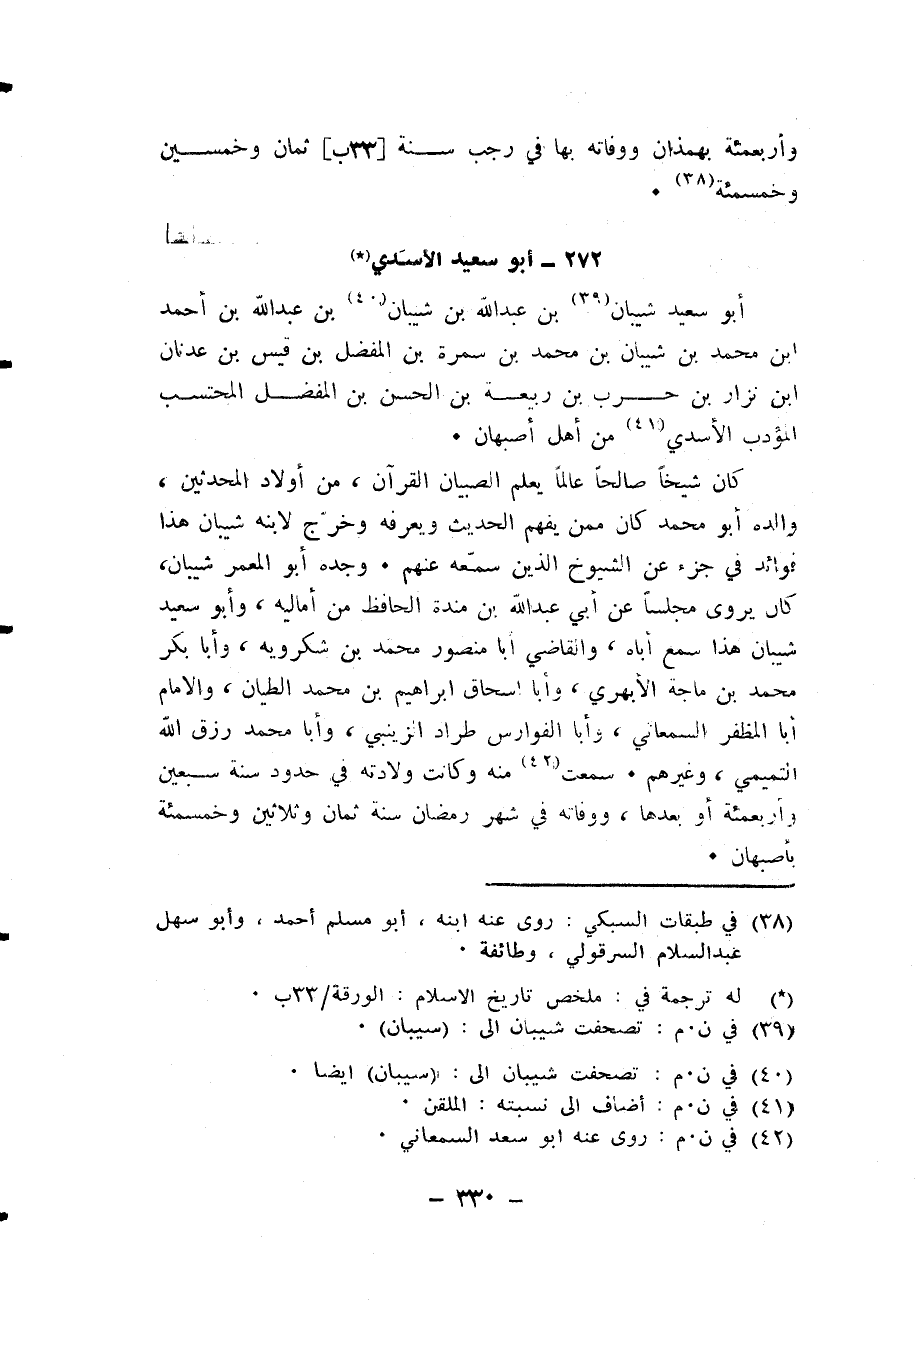 وأربعمئة بهمذان ووفاته بها في رجب ســنة [٣٣ب] ثمان وخمســين
وخمسمئة(٣٨) ٠
٢٧٢ ـ أبو سعيد الأسدي(*)
أبو سعيد شيبان(٣٩) بن عبدالله بن شيبان(٤٠) بن عبدالله بن أحمد
ابن محمد بن شيبان بن محمد بن سمرة بن المفضل بن قيس بن عدنان
ابن نزار بن حــرب بن ربيعــة بن الحسن بن المفضــل المحتسب
المؤدب الأسدي(٤١) من أهل أصبهان ٠
كان شيخاً صالحاً عالماً يعلم الصبيان القرآن ، من أولاد المحدثين ،
والده أبو محمد كان ممن يفهم الحديث ويعرفه وخرّج لابنه شيبان هذا
فوائد في جزء عن الشيوخ الذين سمّعه عنهم ٠ وجده أبو المعمر شيبان،
كان يروى مجلساً عن أبي عبدالله بن مندة الحافظ من أماليه ، وأبو سعيد
شيبان هذا سمع أباه ، والقاضي أبا منصور محمد بن شكرويه ، وأبا بكر
محمد بن ماجة الأبهري ، وأبا اسحاق ابراهيم بن محمد الطيان ، والامام
أبا المظفر السمعاني ، وأبا الفوارس طراد الزينبي ، وأبا محمد رزق الله
التميمي ، وغيرهم ٠ سمعت(٤٢) منه وكانت ولادته في حدود سنة سبعين
وأربعمئة أو بعدها ، ووفاته في شهر رمضان سنة ثمان وثلاثين وخمسمئة
بأصبهان ٠
(٣٨) في طبقات السبكي : روى عنه ابنه ، أبو مسلم أحمد ، وأبو سهل
عبدالسلام السرقولي ، وطائفة ٠
(*) له ترجمة في : ملخص تاريخ الاسلام : الورقة/٣٣ب ٠
(٣٩) في ن٠م : تصحفت شيبان الى : (سيبان) ٠
(٤٠) في ن٠م : تصحفت شيبان الى : (سيبان) ايضا ٠
(٤١) في ن٠م : أضاف الى نسبته : الملقن ٠
(٤٢) في ن٠م : روى عنه ابو سعد السمعاني ٠
ـ ٣٣٠ ـ